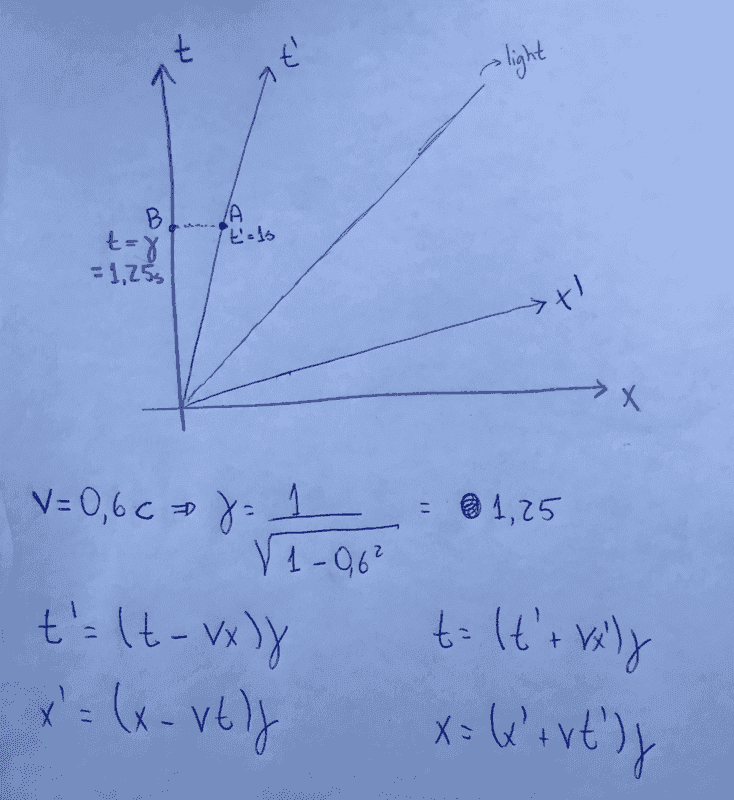 t
t'
light
B
A
t'=1s
t=γ
=1,25s
x'
x
v=0,6c ⇒ γ= 1/√(1-0,6²) = 1,25
t'=(t-vx)γ
t=(t'+vx')γ
x'=(x-vt)γ
x=(x'+vt')γ